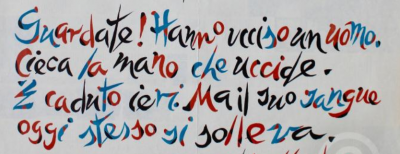 Guardate! Hanno ucciso un uomo.
Cieca la mano che uccide.
È caduto ieri. Ma il suo sangue
oggi stesso si solleva.